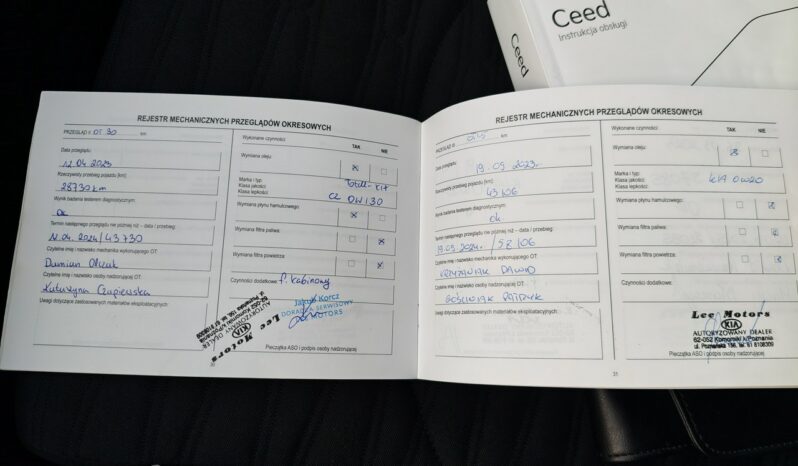 Ceed
Instrukcja obsługi
Ceed
REJESTR MECHANICZNYCH PRZEGLĄDÓW OKRESOWYCH
PRZEGLĄD OT 30 km
Data przeglądu:
12.04.2023
Rzeczywisty przebieg pojazdu [km]:
28730 km
Wynik badania testerem diagnostycznym:
Ok
Termin następnego przeglądu nie później niż – data / przebieg:
12.04.2024/43730
Czytelne imię i nazwisko mechanika wykonującego OT:
Damian
Czytelne imię i nazwisko osoby nadzorującej OT:
Katarzyna Czapiewska
Uwagi dotyczące zastosowanych materiałów eksploatacyjnych:
Wykonane czynności: TAK NIE
Wymiana oleju:
Marka i typ:
Klasa jakości:
Klasa lepkości: 0W130
Wymiana płynu hamulcowego:
Wymiana filtra paliwa:
Wymiana filtra powietrza:
Czynności dodatkowe: f. kabinowy
Jakub Korcz
DORADCA SERWISOWY
Lee Motors
KIA
AUTORYZOWANY DEALER
62-052 Komorniki k/Poznania
ul. Poznańska 156, tel. 61 8108309
Pieczątka ASO i podpis osoby nadzorującej
REJESTR MECHANICZNYCH PRZEGLĄDÓW OKRESOWYCH
PRZEGLĄD km
Data przeglądu:
19.09.2023r.
Rzeczywisty przebieg pojazdu [km]:
43106
Wynik badania testerem diagnostycznym:
ok
Termin następnego przeglądu nie później niż – data / przebieg:
19.09.2024r. / 58106
Czytelne imię i nazwisko mechanika wykonującego OT:
KRZYŻANIAK DAWID
Czytelne imię i nazwisko osoby nadzorującej OT:
GOŚCINIAK PATRYK
Uwagi dotyczące zastosowanych materiałów eksploatacyjnych:
Wykonane czynności: TAK NIE
Wymiana oleju:
Marka i typ:
Klasa jakości: KIA 0W20
Klasa lepkości:
Wymiana płynu hamulcowego:
Wymiana filtra paliwa:
Wymiana filtra powietrza:
Czynności dodatkowe:
Lee Motors
KIA
AUTORYZOWANY DEALER
62-052 Komorniki k/Poznania
ul. Poznańska 156, tel. 61 8108309
Pieczątka ASO i podpis osoby nadzorującej
31